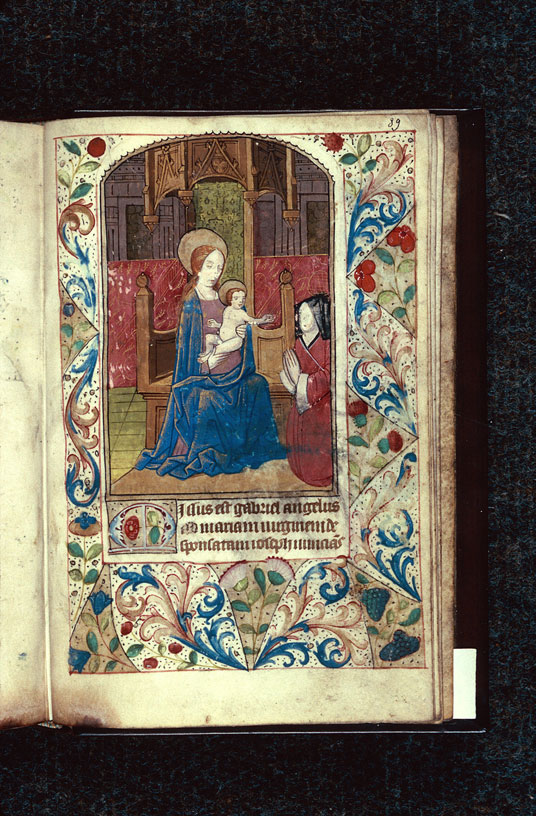 89
Missus est gabriel angelus
ad mariam virginem de
sponsatam ioseph nuncias